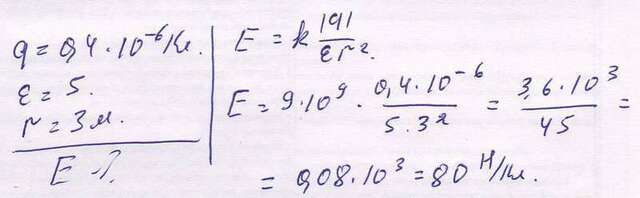 q = 0,4·10⁻⁶ Кл.
ε = 5.
r = 3 м.
E - ?
E = k |q| / εr².
E = 9·10⁹ · 0,4·10⁻⁶ / 5·3² = 3,6·10³ / 45 =
= 0,08·10³ = 80 Н/Кл.